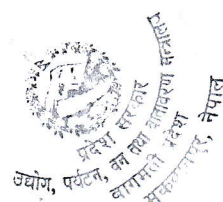 प्रदेश सरकार
उद्योग, पर्यटन, वन तथा वातावरण मन्त्रालय
बागमती प्रदेश
मकवानपुर, नेपाल